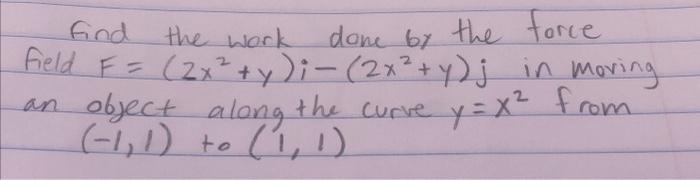 Find the work done by the force
field F = (2x² + y)i − (2x² + y)j in moving
an object along the curve y = x² from
(-1, 1) to (1, 1)